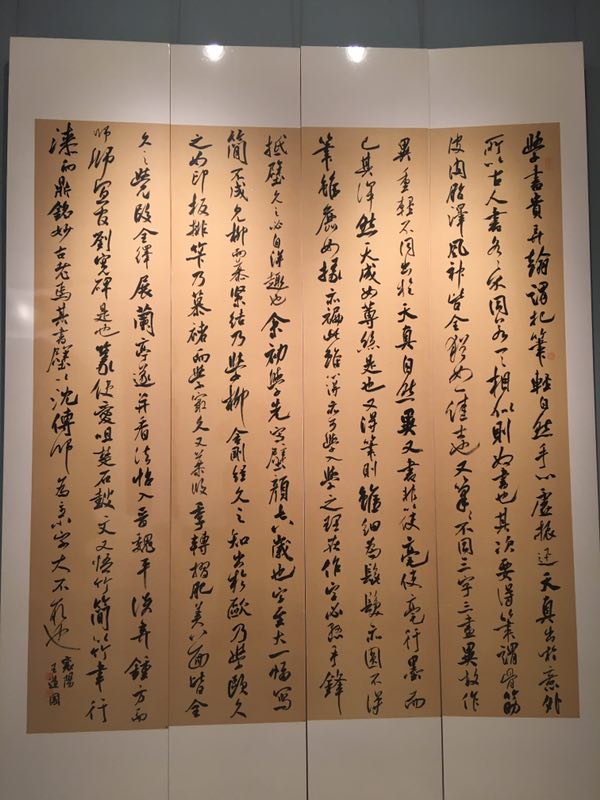 學書貴弄翰謂把筆輕自然手心虛振迅天真出於意外
所以古人書各各不同若一一相似則奴書也其次要得筆謂骨筋
皮肉脂澤風神皆全猶如一佳士也又筆筆不同三字三畫異故作
異重輕不同出於天真自然異又書非以使毫使毫行墨而
已其渾然天成如蓴絲是也又得筆則雖細為髭髮亦圓不得
筆雖麤如椽亦褊此雖心得亦可學入學之理在作字必懸手鋒
抵壁久之必自得趣也余初學先寫壁顏七八歲也字至大一幅寫
簡不成見柳而慕緊結乃學柳金剛經久之知出於歐乃學歐久
之如印板排算乃慕褚而學最久又慕段季轉摺肥美八面皆全
久之覺段全繹展蘭亭遂并看法帖入晉魏平淡棄鍾方而
師師宜官劉寬碑是也篆便愛咀楚石鼓文又悟竹簡以竹聿行
漆而鼎銘妙古老焉其書壁以沈傳師為主小字大不取也
襄陽